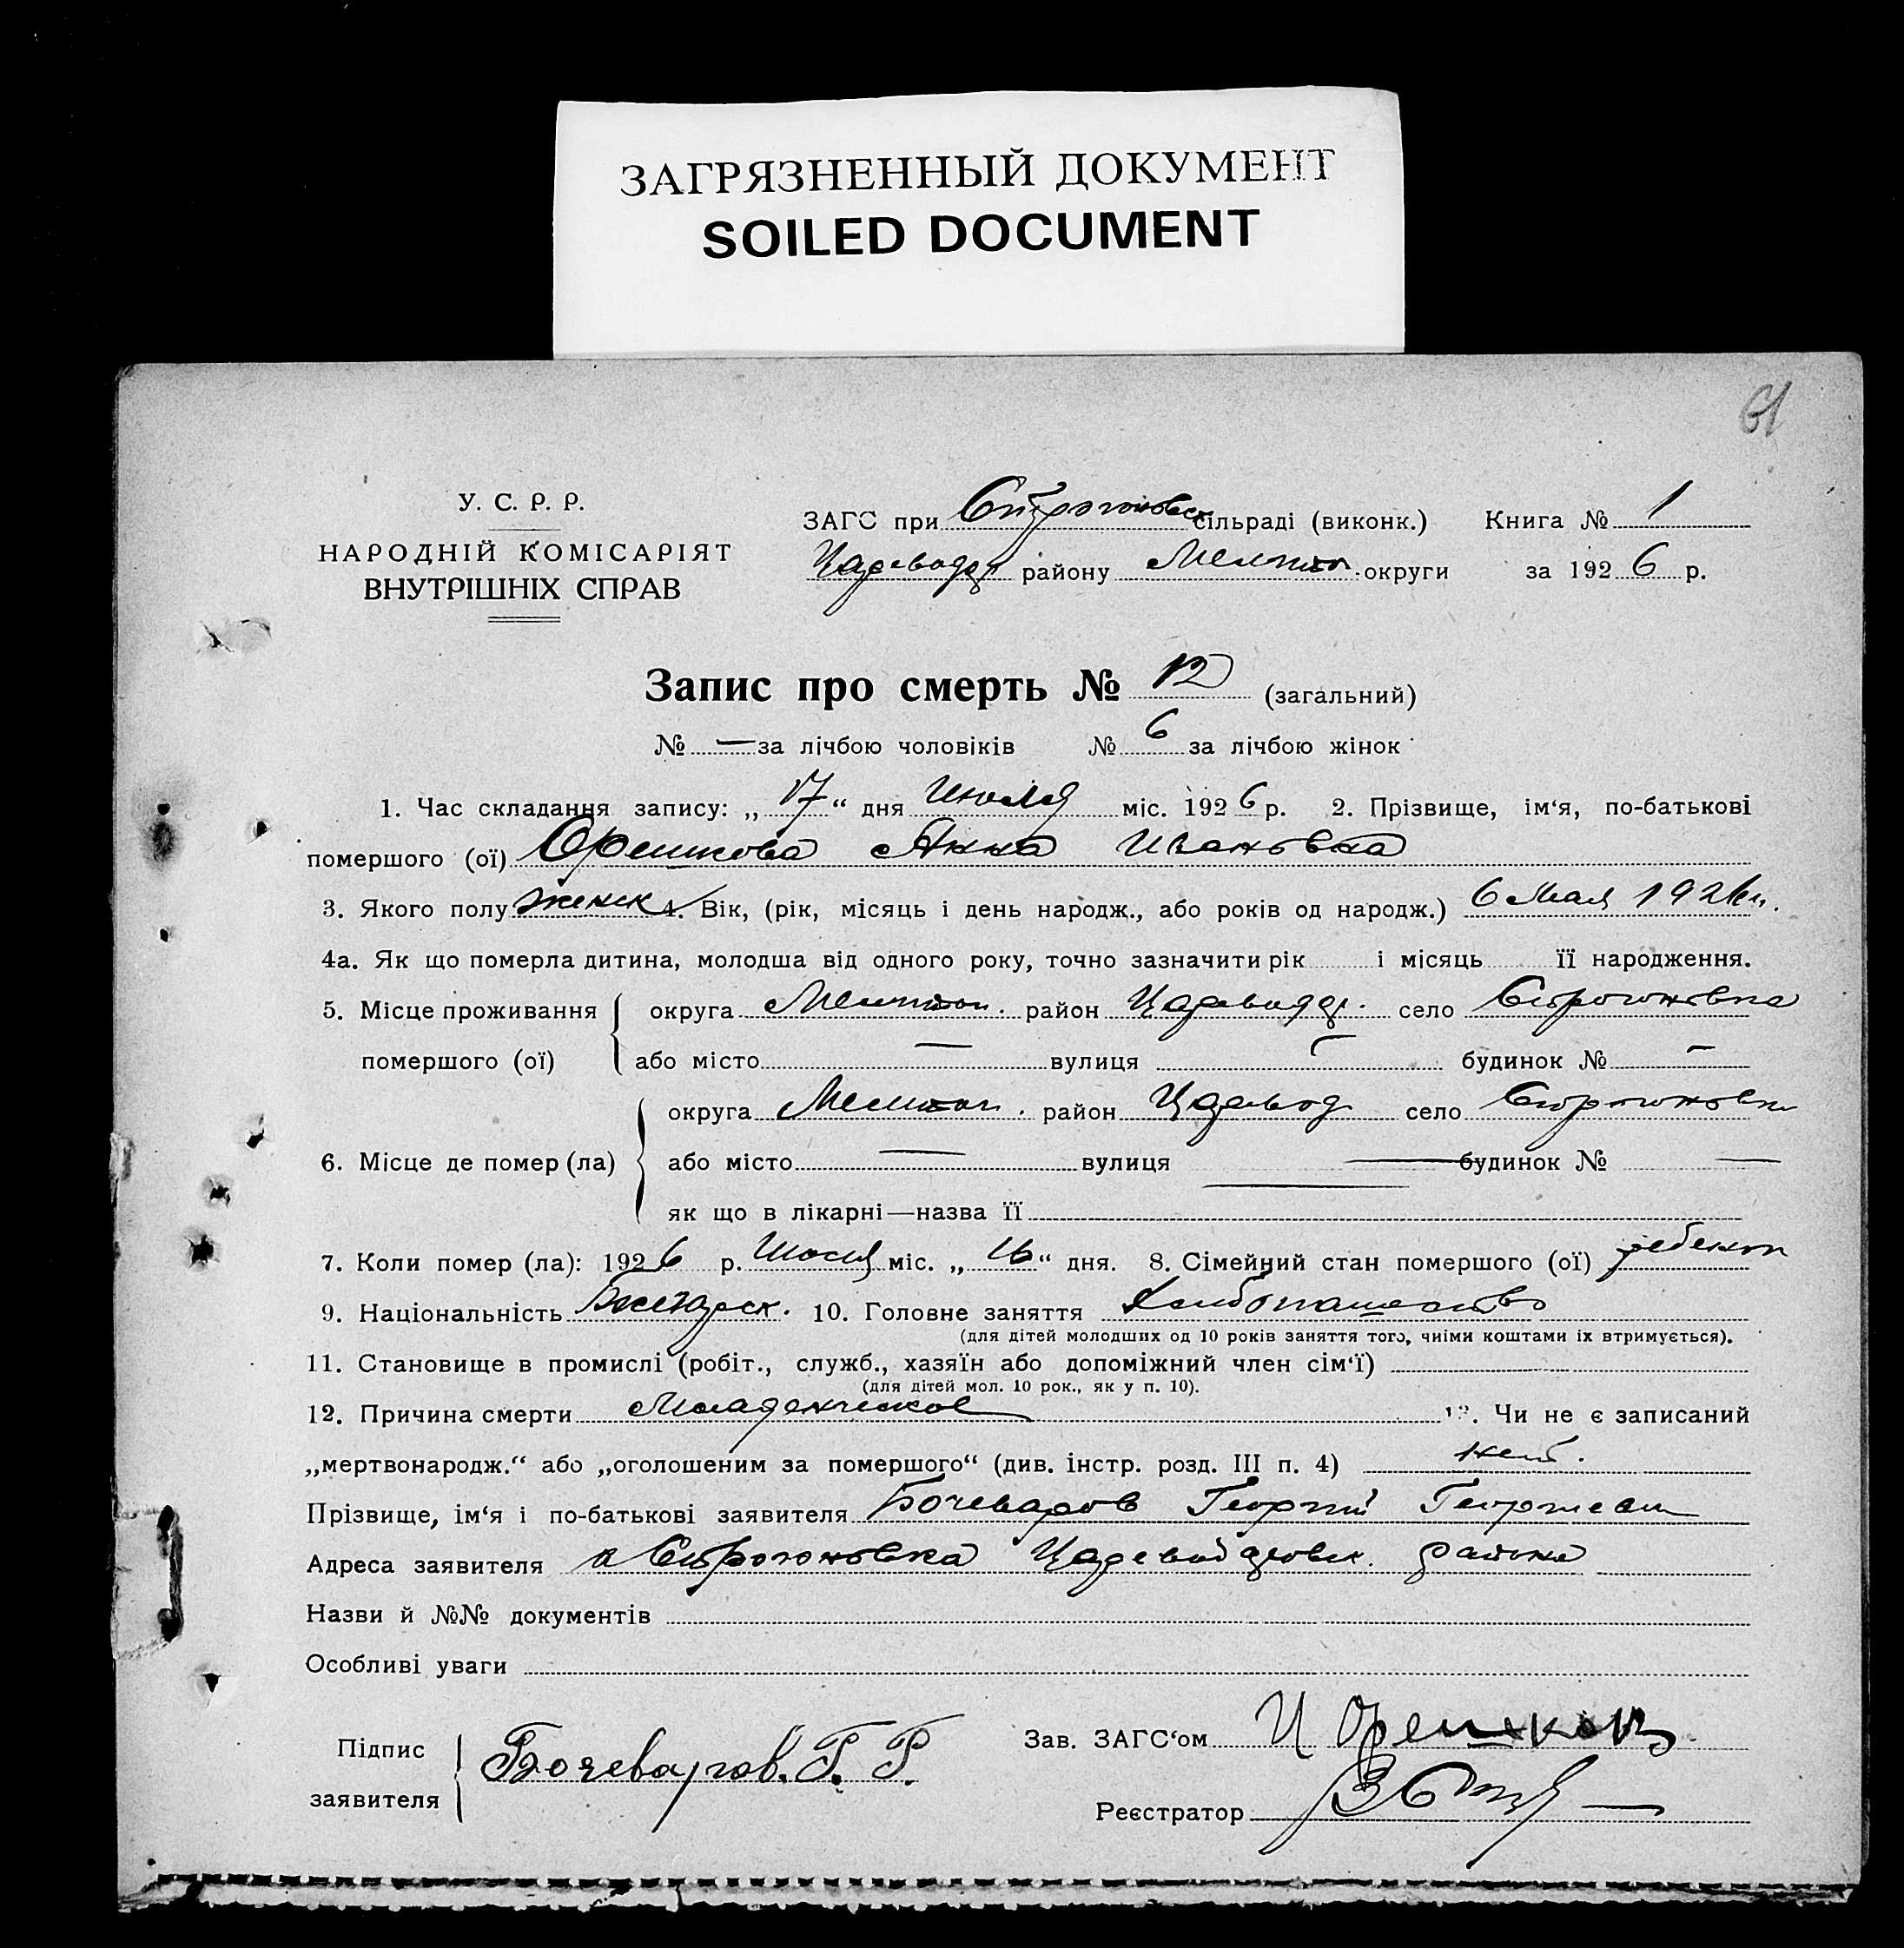 ЗАГРЯЗНЕННЫЙ ДОКУМЕНТ
SOILED DOCUMENT
61
У. С. Р. Р.
НАРОДНІЙ КОМІСАРІЯТ
ВНУТРІШНІХ СПРАВ
ЗАГС при Строгоновск сільраді (виконк.) Книга № 1
Цареводд району Мелитоп. округи за 1926 р.
Запис про смерть № 12 (загальний)
№ — за лічбою чоловіків № 6 за лічбою жінок
1. Час складання запису: „17“ дня Июля міс. 1926 р. 2. Прізвище, ім‘я, по-батькові
помершого (ої) Орешкова Анна Ивановна
3. Якого полу женск 4. Вік, (рік, місяць і день народж., або років од народж.) 6 Мая 1926 г.
4а. Як що померла дитина, молодша від одного року, точно зазначити рік і місяць її народження.
5. Місце проживання округа Мелитоп. район Цареводд. село Строгоновка
помершого (ої) або місто — вулиця — будинок № —
округа Мелитоп. район Царевод село Строгоновка
6. Місце де помер (ла) або місто — вулиця — будинок № —
як що в лікарні—назва її
7. Коли помер (ла): 1926 р. Июля міс. „16“ дня. 8. Сімейний стан помершого (ої) ребенок
9. Національність Болгарск. 10. Головне заняття Хлебопашество
(для дітей молодших од 10 років заняття того, чиїми коштами їх втримується).
11. Становище в промислі (робіт., служб., хазяїн або допоміжний член сім‘ї)
(для дітей мол. 10 рок., як у п. 10).
12. Причина смерти Младенческое 13. Чи не є записаний
„мертвонародж.“ або „оголошеним за помершого“ (див. інстр. розд. III п. 4) нет.
Прізвище, ім‘я і по-батькові заявителя Бочеваров Георгий Георгиевич
Адреса заявителя с Строгоновка Цареводдровск. района
Назви й №№ документів
Особливі уваги
Підпис заявителя Бочеваров. Г. Г.
Зав. ЗАГС‘ом И Орешков
Реєстратор